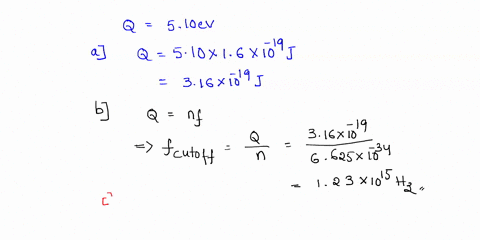 Q = 5.10ev
a] Q = 5.10 × 1.6 × 10⁻¹⁹ J
= 3.16 × 10⁻¹⁹ J
b] Q = nf
=> f_cutoff = Q/n = 3.16 × 10⁻¹⁹ / 6.625 × 10⁻³⁴
= 1.23 × 10¹⁵ Hz.